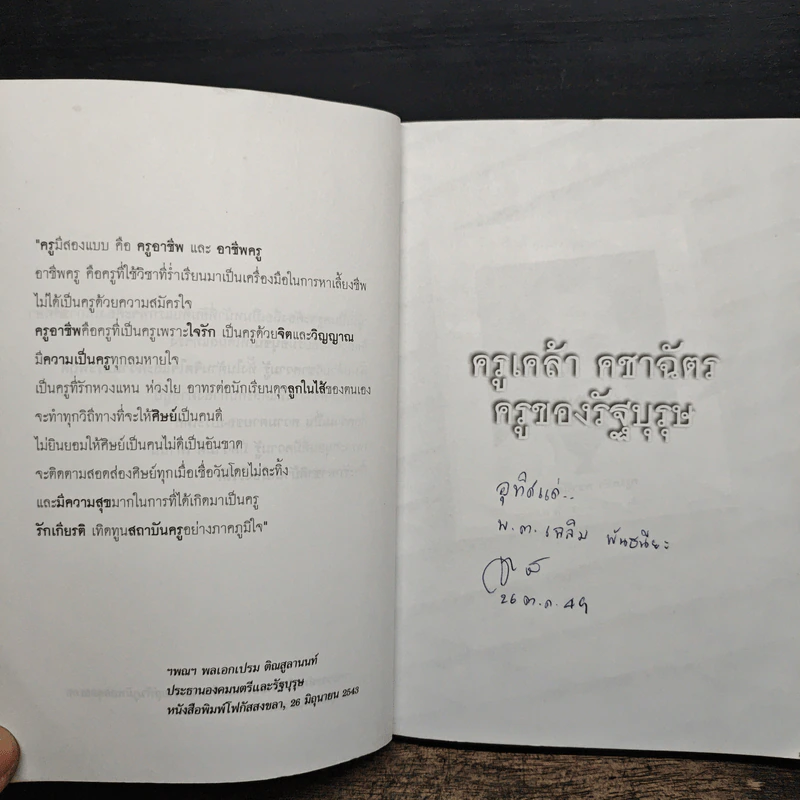 "ครูมีสองแบบ คือ ครูอาชีพ และ อาชีพครู
อาชีพครู คือครูที่ใช้วิชาที่ร่ำเรียนมาเป็นเครื่องมือในการหาเลี้ยงชีพ
ไม่ได้เป็นครูด้วยความสมัครใจ
ครูอาชีพคือครูที่เป็นครูเพราะใจรัก เป็นครูด้วยจิตและวิญญาณ
มีความเป็นครูทุกลมหายใจ
เป็นครูที่รักหวงแหน ห่วงใย อาทรต่อนักเรียนดุจลูกในไส้ของตนเอง
จะทำทุกวิถีทางที่จะให้ศิษย์เป็นคนดี
ไม่ยินยอมให้ศิษย์เป็นคนไม่ดีเป็นอันขาด
จะติดตามสอดส่องศิษย์ทุกเมื่อเชื่อวันโดยไม่ละทิ้ง
และมีความสุขมากในการที่ได้เกิดมาเป็นครู
รักเกียรติ เทิดทูนสถาบันครูอย่างภาคภูมิใจ"
ฯพณฯ พลเอกเปรม ติณสูลานนท์
ประธานองคมนตรีและรัฐบุรุษ
หนังสือพิมพ์โฟกัสสงขลา, 26 มิถุนายน 2543
ครูเคล้า คชาฉัตร
ครูของรัฐบุรุษ
อุทิศแด่..
พ.ต. เฉลิม พันธนียะ
26 ต.ค. 49